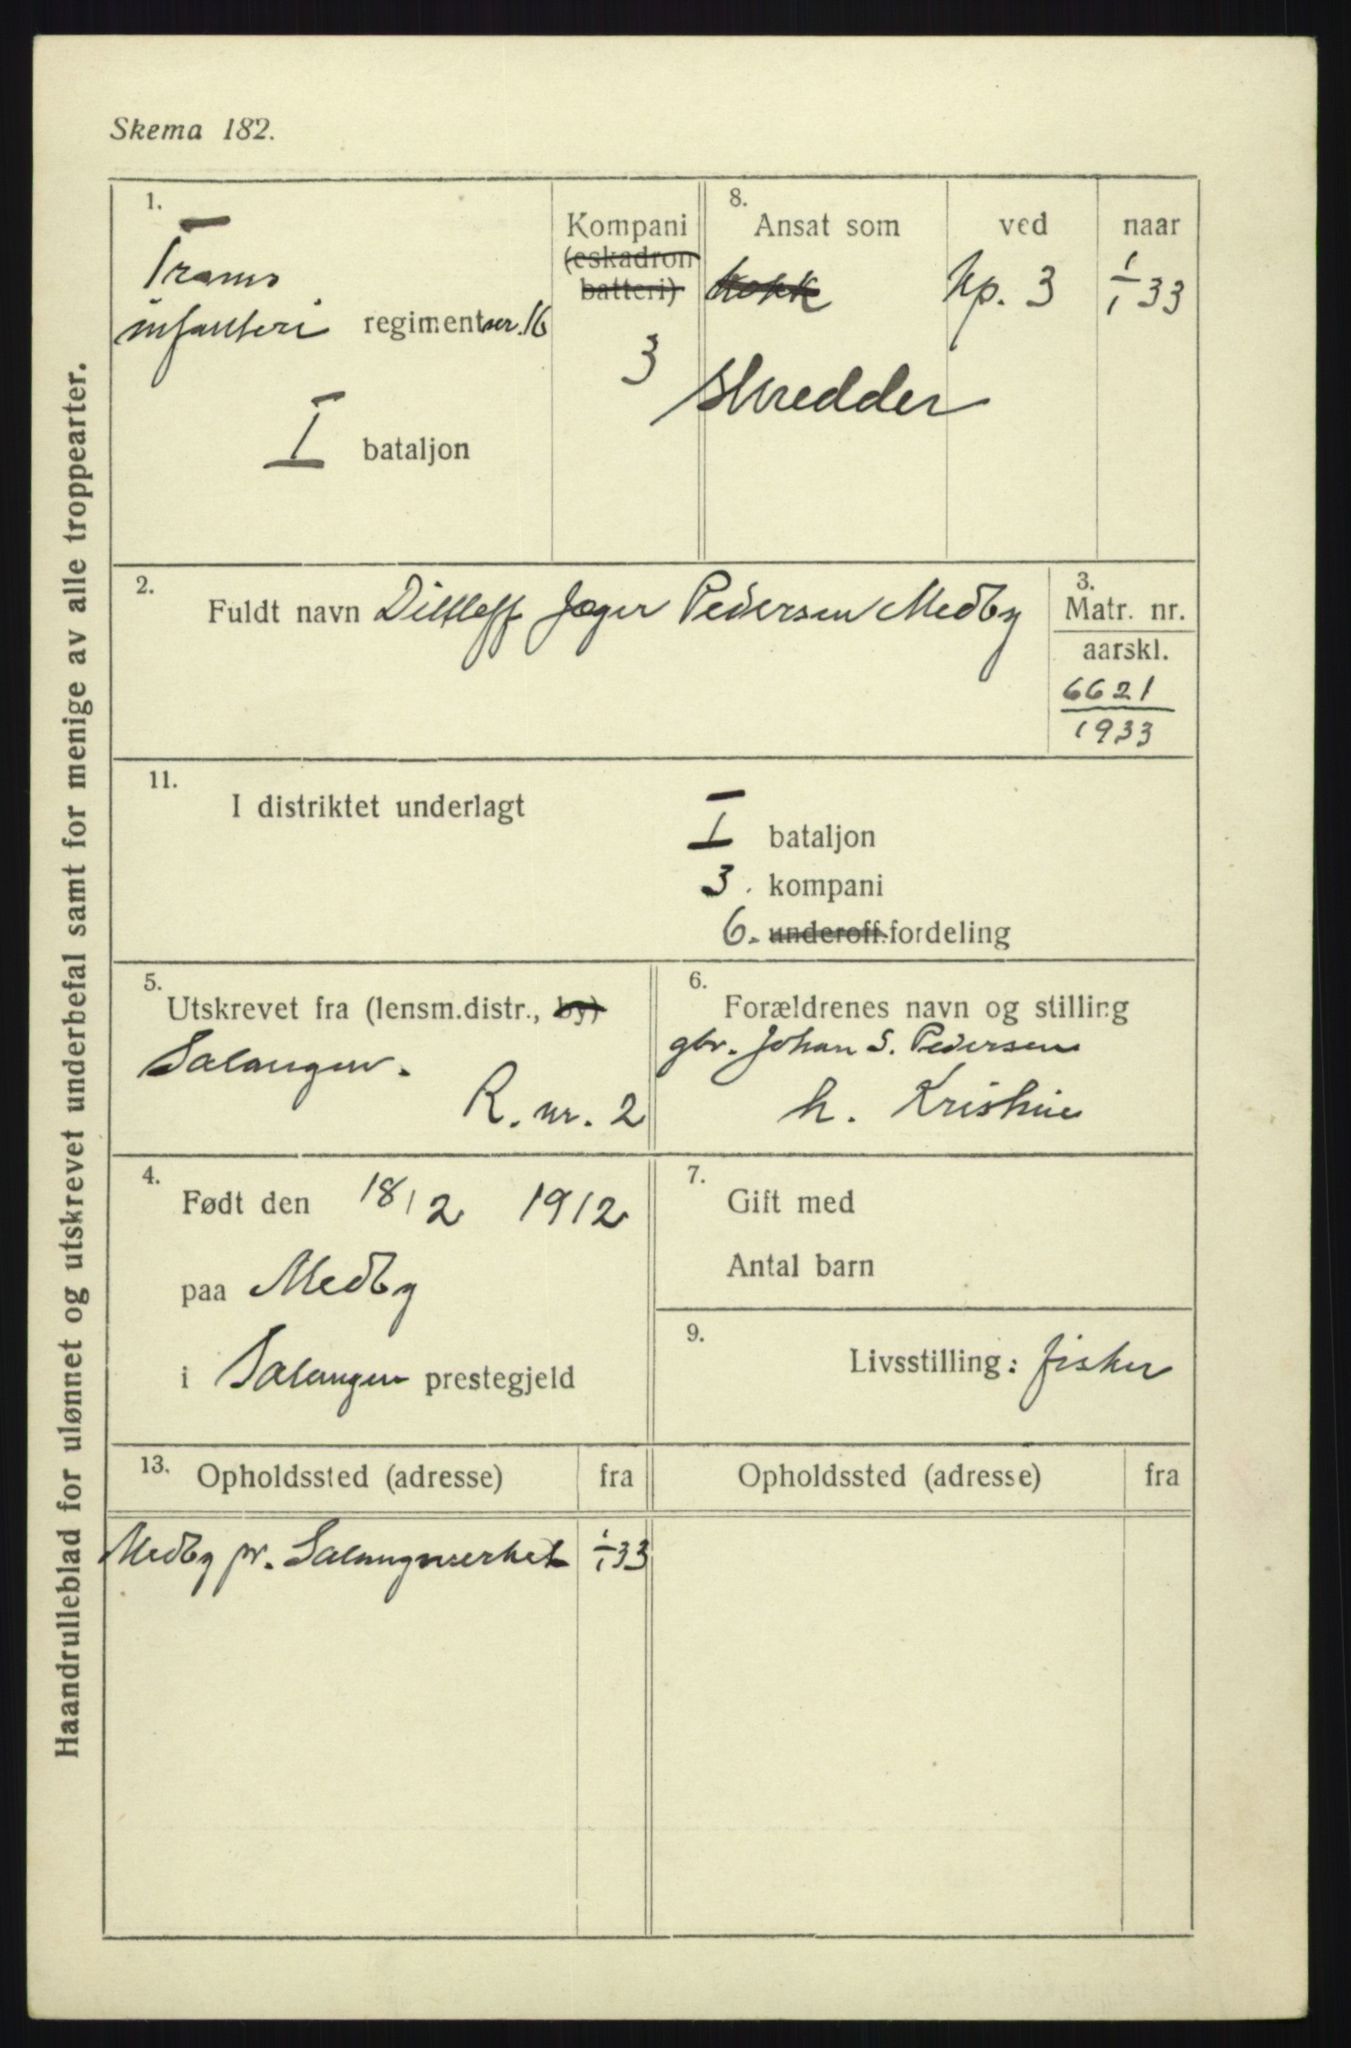 Skema 182.
Haandrulleblad for ulønnet og utskrevet underbefal samt for menige av alle troppearter.
1.
Troms
infanteri regiment nr. 16
I bataljon
Kompani
(eskadron
batteri)
3
8.
Ansat som ved naar
kokk kp. 3 1/1 33
skredder
2.
Fuldt navn Ditleff Jæger Pedersen Medby
3.
Matr. nr.
aarskl.
6621
1933
11.
I distriktet underlagt
I bataljon
3. kompani
6. underoff.fordeling
5.
Utskrevet fra (lensm.distr., by)
Salangen.
R. nr. 2
6.
Forældrenes navn og stilling
gbr. Johan S. Pedersen
h. Kristine
4.
Født den 18/2 1912
paa Medby
i Salangen prestegjeld
7.
Gift med
Antal barn
9.
Livsstilling: fisker
13. Opholdssted (adresse) fra Opholdssted (adresse) fra
Medby pr. Salangsverket 1/1 33